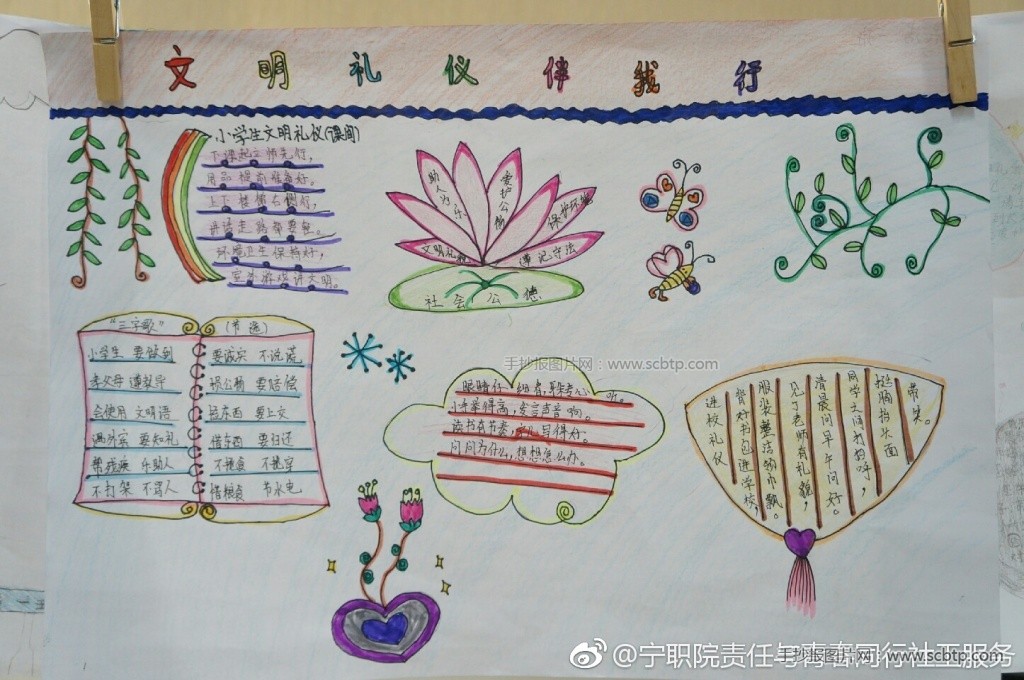 文明礼仪伴我行
小学生文明礼仪(课间)
下课起立师先行,
用品提前准备好。
上下楼梯右侧行,
讲话走路都要轻。
环境卫生保持好,
室外游戏讲文明。
助人为乐
爱护公物
保护环境
文明礼貌
遵纪守法
社会公德
"三字歌"
(节选)
小学生 要做到
孝父母 遵教导
会使用 文明语
遇外宾 要知礼
帮残疾 乐助人
不打架 不骂人
要诚实 不说谎
损公物 要赔偿
拾东西 要上交
借东西 要归还
不挑食 不挑穿
惜粮食 节水电
手抄报图片网:www.scbtp.com
小手举得高,发言声音响。
读书有节奏, 写得好。
问问为什么,想想怎么办。
进校礼仪
背好书包进学校,
服装整洁领巾飘。
见了老师有礼貌,
清晨问早午问好。
同学之间打招呼,
挺胸抬头面
带笑。
@宁职院责任与青春同行社工服务
手抄报图片网:www.scbtp.com